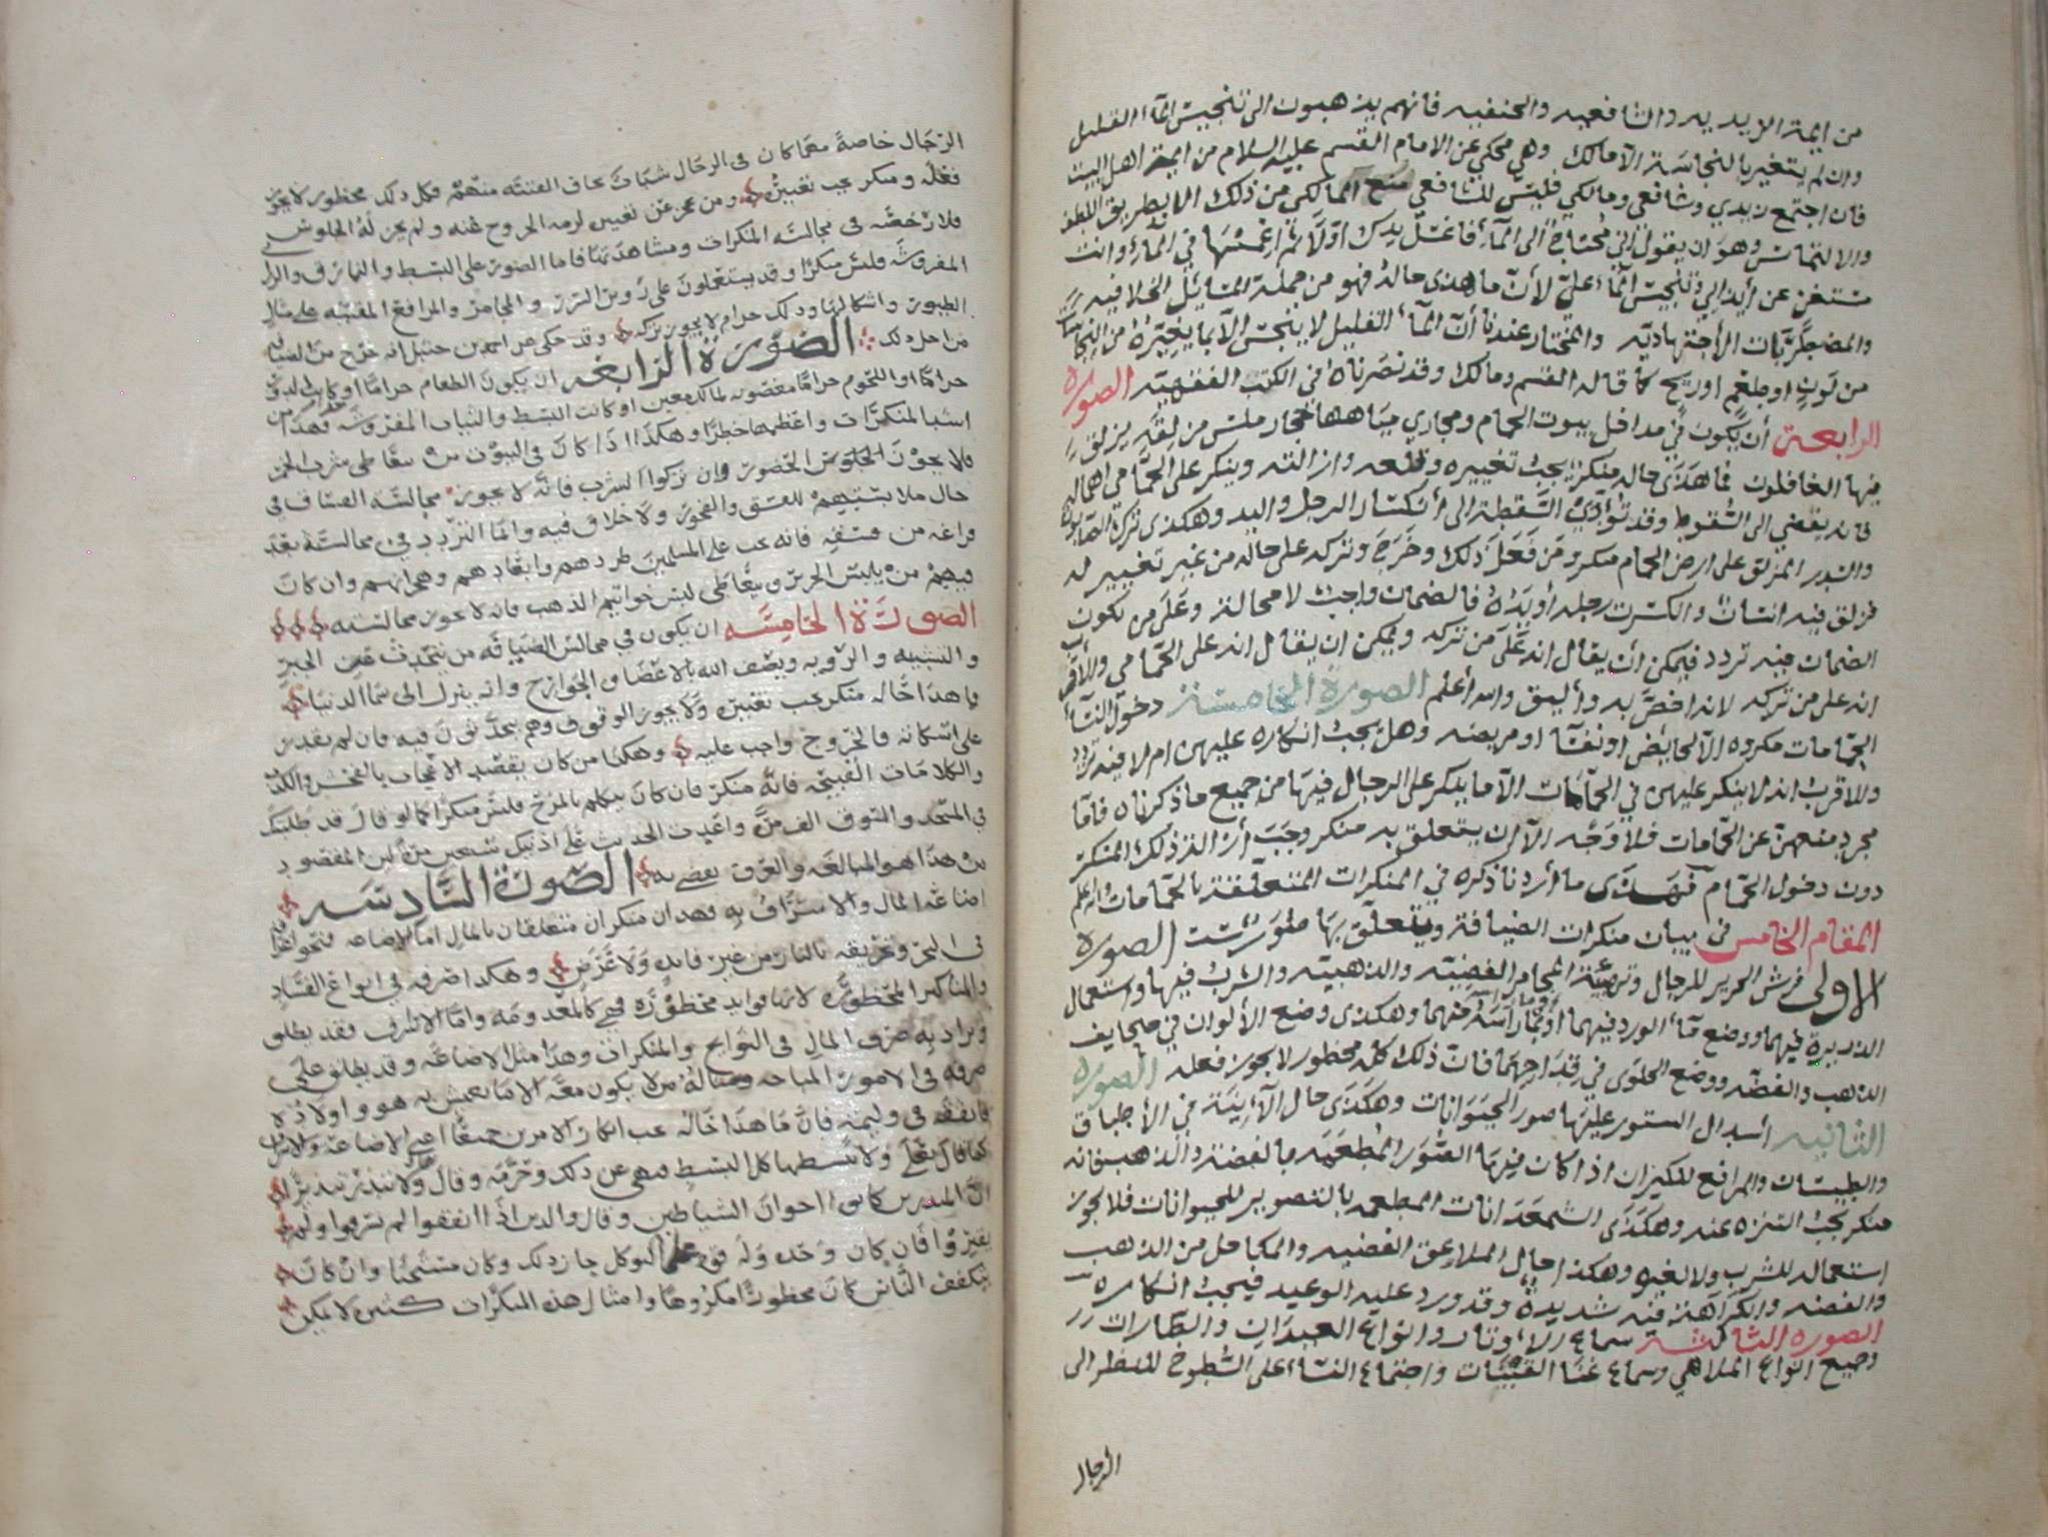 من ايمة الزيديه والشافعيه والحنفيه فانهم يذهبون الى تنجيس المآ القليل
وان لم يتغير بالنجاسة الا مالك وهي محكي عن الامام القسم عليه السلام من ايمة اهل البيت
فان اجتمع زيدي وشافعي ومالكي فليس للشافعي منع المالكي من ذلك الا بطريق اللطف
والالتماس وهو ان يقول اني محتاج الى المآء فاغسل يدك اوّلا ثم اغمسها في المآء وانت
مستغن عن أيذاي وتنجيس المآء عليّ لأنّ ما هذى حاله فهو من جملة المسائل الخلافيه
والمضطربات الأجتهاديه والمختار عندنا أنّ المآء القليل لا ينجس الا بما يغيّره من النجاسات
من لون اوطعم اوريح كما قاله القسم ومالك وقد نصرناه في الكتب الفقهيه الصوره
الرابعة أن يكون في مداخل بيوت الحمام ومجاري مياهها احجار ملس مزلقه يزلق
فيها الغافلون فما هذى حاله منكر يجب تغييره وقلعه وازالته وينكر على الحمّامي اهماله
فانه يفضي الى السقوط وقد تؤدي السّقطة الى أنكسار الرجل واليد وهكذى ترك الصابون
والسدر المزلق على ارض الحمام منكر ومن فعل ذلك وخرج وتركه على حاله من غير تغيير له
فزلق فيه انسان وانكسرت رجله أو يداه فالضمان واجب لا محالة وعلى من يكون
الضمان فيه تردد فيمكن أن يقال انه على من تركه ويمكن ان يقال انه على الحمّامي والأقرب
انه على من تركه لانه اخصّ به وأليق والله أعلم الصورة الخامسة دخول النسآء
الحمامات مكروه الا لحايض او نفسآ او مريضه وهل يجب انكاره عليهن ام لا فيه تردد
والاقرب انه لا ينكر عليهن في الحمّامات الا ما ينكر على الرجال فيها من جميع ما ذكرناه فامّا
مجرد منعهن عن الحمامات فلا وجه الا ان يتعلق به منكر وجب أزالة ذلك المنكر
دون دخول الحمّام فهذى ما أردنا ذكره في المنكرات المتعلقة بالحمّامات والله اعلم
المقام الخامس في بيان منكرات الضيافة ويتعلّق بها صور ستت الصوره
الاولى فرش الحرير للرجال وتهيئة المجامر الفضيّه والذهبيّه والشرب فيها واستعمال
الذريرة فيهما ووضع مآء الورد فيهما وهكذى وضع الألوان في صحايف
الذهب والفضّه ووضع الحلوى في قداحهما فان ذلك كله محظور لا يجوز فعله الصوره
الثانيه أسدال الستور عليها صور الحيوانات وهكذى حال الآنية في الأطباق
والطيسان والمرافع للكيزان اذا كان فيها الصّور المطعّمه بالفضّة والذهب فانه
منكر يجب التنزه عنه وهكذى الشمعدانات المطعمه بالتصوير للحيوانات فلا يجوز
استعماله للشرب ولا لغيره وهكذا حال الملاعق الفضيه والمكاحل من الذهب
والفضه والكراهة فيه شديدة وقد ورد عليه الوعيد فيجب انكاره
الصورة الثالثة سماع الأوتار وانواع العيدان والطارات
وجميع انواع الملاهي وسماع غنا القينات واجتماع النسآء على السّطوح للنظر الى
الرجال
الرّجال خاصةً مهما كان في الرجال شباب تخاف الفتنه منهم فكل ذلك محظور لا يجوز
فعله ومنكر يجب تغييره ومن عجز عن تغييره لزمه الخروج عنه ولم يجز له الجلوس
فلا رخصه في مجالسة المنكرات ومشاهدتها فاما الصور على البسط والنمارق والزرابي
المفروشه فليس منكرا وقد يستعملون على روس السرر والمجامر والمرافع المفضّيه على مثال
الطيور واشكالها وذلك حرام لا يجوز تركه وقد حكي عن احمد بن حنبل انه خرج من الضيافه
من اجل ذلك الصورة الرابعه ان يكون الطعام حراما او كانت
حراما او اللحوم حراما مغصوبه لمالك معين او كانت البسط والثياب المفروشه فهذا من
اشد المنكرات واعظمها خطرًا وهكذا اذا كان في البيوت من يتعاطى شرب الخمر
فلا يجوز الجلوس الحضور وان تركوا الشرب فانه لا يجوز مجالسة الفساق في
حال ملابستهم للفسق والفجور ولا خلاف فيه وانما التردد في مجالسته بعد
فراغه من فسقه فانه يجب على المسلمين طردهم وابعادهم وهجرانهم وان كان
فيهم من يلبس الحرير ويتعاطى لبس خواتيم الذهب فانه لا يجوز مجالسته
الصورة الخامسه ان يكون في مجالس الضيافه من يتحدث الجبر
والتشبيه والرؤيه ويصف الله بالاعضا والجوارح وانه ينزل الى سما الدنيا
فما هذا حاله منكر يجب تغييره ولا يجوز الوقوف وهم يتحدثون فيه فان لم يقدر
على اسكاته فالخروج واجب عليه وهكذا من كان يقصد الاعجاب بالفحش والكذب
والكلامات القبيحه فانه منكر فان كان يتكلم بالمزح فليس منكرا كما لو قال قد طلبتك
في المسجد والسوق الف مرّة واعدت الحديث على اذنيك سبعين مرّة لان المقصود
من هذا هو المبالغه والعرف يقضي به الصورة السادسه
اضاعه المال والاسراف به فهذان منكران متعلقان بالمال اما الاضاعه فنحو القا
في البحر وتحريقه بالنار من غير فايده ولا غرض وهكذا صرفه في انواع الفساد
والمناكير المحظورة لانها فوايد محظوره فهي كالمعدومه واما الاسراف فقد يطلق
ويراد به صرف المال في النوايح والمنكرات وهذا مثل الاضاعه وقد يطلق على
صرفه في الامور المباحه ومثاله من لا يكون معه الا ما يعيش به هو واولاده
فانفقه في وليمه فان ما هذا حاله يجب انكار الامرين جميعا اعني الاضاعه والاسراف
كما قال تعلى ولا تبسطها كل البسط فنهى عن ذلك وحرمه وقال ولا تبذر تبذيرا
ان المبذرين كانوا اخوان الشياطين وقال والذين اذا انفقوا لم يسرفوا ولم
يقتروا فان كان وحده وله قوة على التوكل جاز ذلك وكان مستحبا وان كان
يتكفف الناس كان محظورا مكروها وامثال هذه المنكرات كثيره لا يمكن